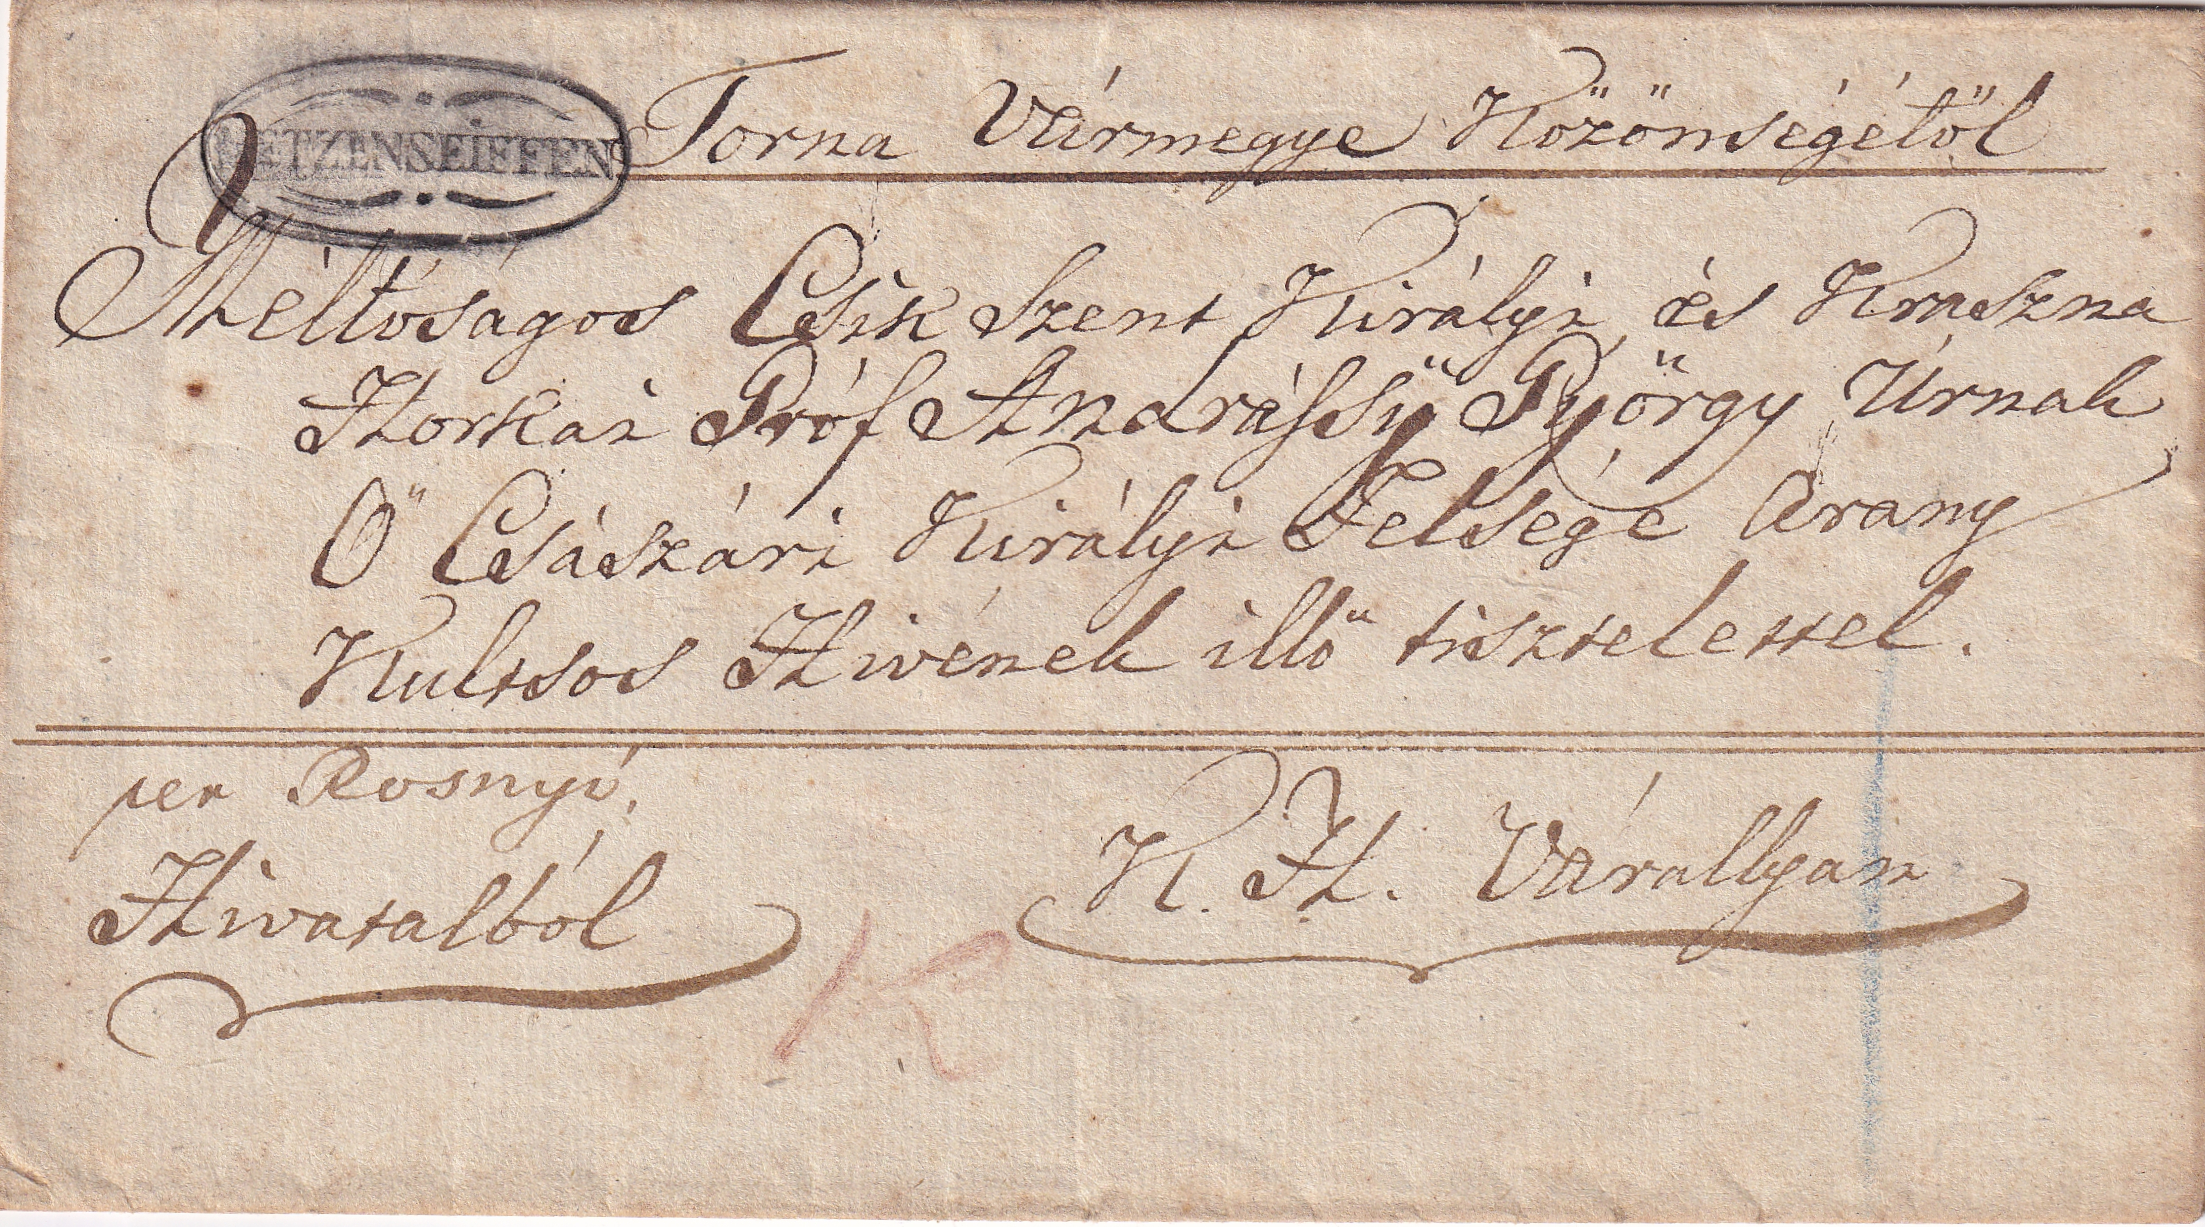 METZENSEIFFEN
Torna Vármegye Közönségétöl
Méltóságos Csik Szent Királyi és Kraszna
Horkai Gróf Andrássÿ György Úrnak
Ö Császári Királyi Felsége Arany
Kultsos Hivének illö tisztelettel.
per Rosnyó.
Hivatalból
K. H. Várallyan
K